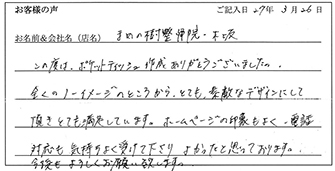 お客様の声 ご記入日 27年 3月26日
お名前&会社名(店名) まめの樹整骨院・本坂
この度は、ポケットティッシュ作成ありがとうございました。
全くのノーイメージのところから、とても、素敵なデザインにして
頂きとても満足しています。ホームページの印象もよく、電話
対応も気持ちよく受けて下さり よかったと思っております。
今後もよろしくお願い致します。